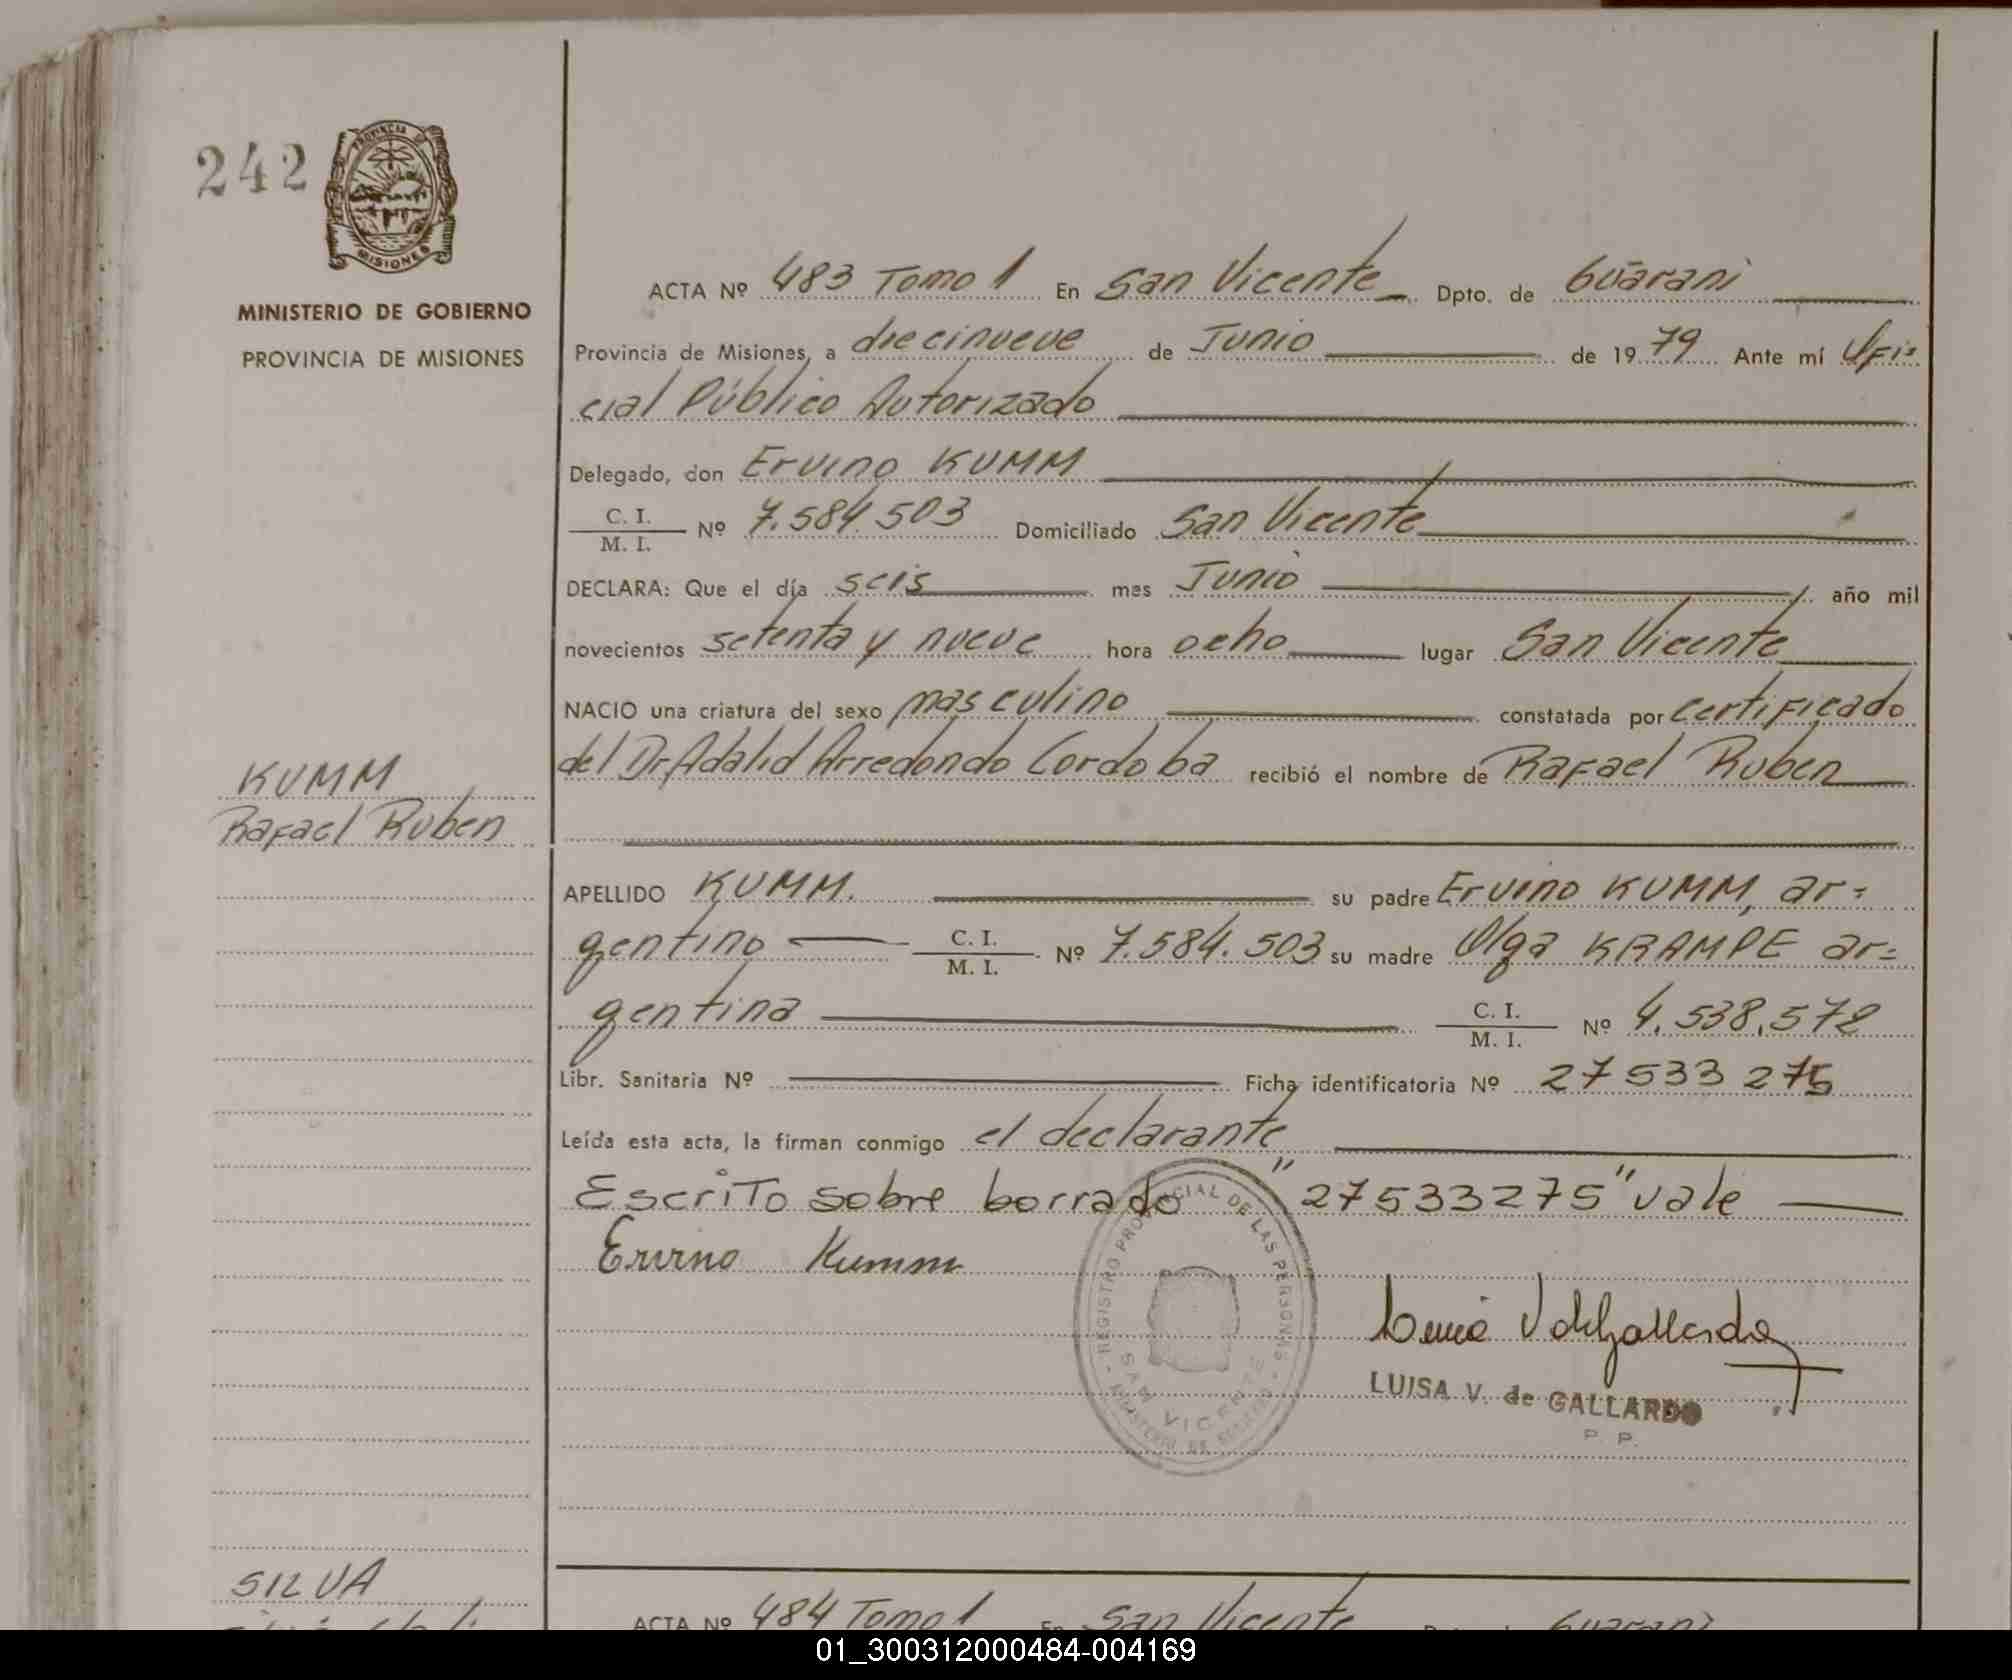 242
PROVINCIA DE
MISIONES
MINISTERIO DE GOBIERNO
PROVINCIA DE MISIONES
ACTA Nº 483 Tomo 1 En San Vicente Dpto. de Guarani
Provincia de Misiones, a diecinueve de Junio de 1979 Ante mí Ofi=
cial Público Autorizado
Delegado, don Ervino KUMM
C. I. / M. I. Nº 7.584.503 Domiciliado San Vicente
DECLARA: Que el día seis mes Junio año mil
novecientos setenta y nueve hora ocho lugar San Vicente
NACIO una criatura del sexo masculino constatada por certificado
del Dr Adalid Arredondo Cordoba recibió el nombre de Rafael Ruben
KUMM
Rafael Ruben
APELLIDO KUMM. su padre Ervino KUMM, ar=
gentino C. I. / M. I. Nº 7.584.503 su madre Olga KRAMPE ar=
gentina C. I. / M. I. Nº 4.538.572
Libr. Sanitaria Nº Ficha identificatoria Nº 27533275
Leída esta acta, la firman conmigo el declarante
Escrito sobre borrado "27533275" vale
Ervino Kumm
REGISTRO PROVINCIAL DE LAS PERSONAS
SAN VICENTE
MINISTERIO DE GOBIERNO
LUISA V. de GALLARDO
P. P.
SILVA
ACTA Nº 484 Tomo 1 En San Vicente Guarani
01_300312000484-004169